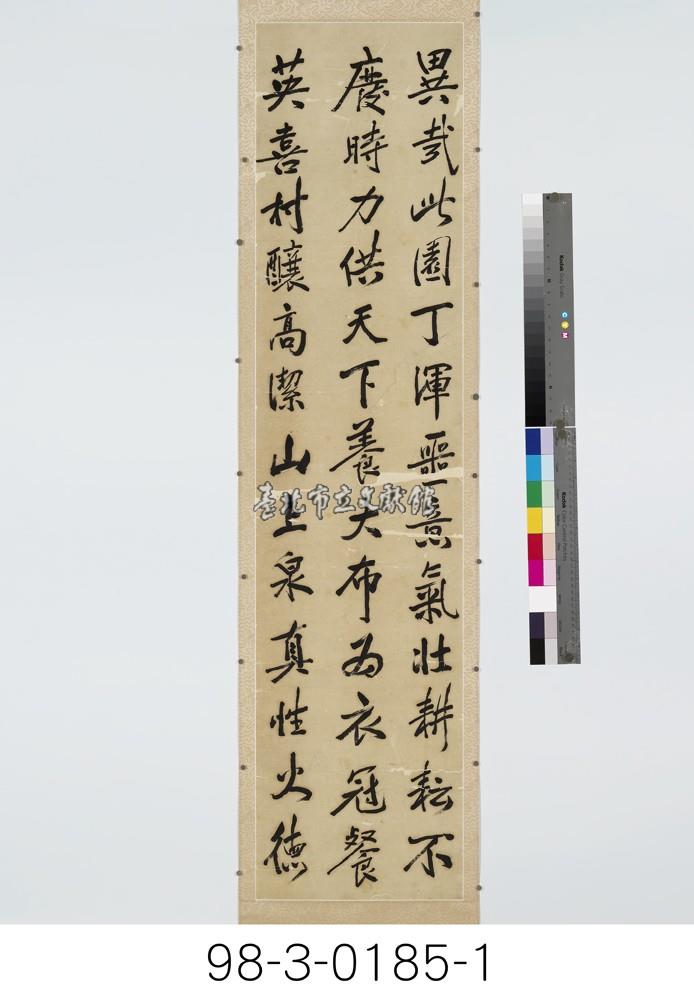 異哉此園丁渾噩意氣壯耕耘不
廢時力供天下養大布為衣冠餐
英喜村釀高潔山上泉真性火德
臺北市立文獻館
Kodak Gray Scale
C Y M
Kodak Color Control Patches
98-3-0185-1